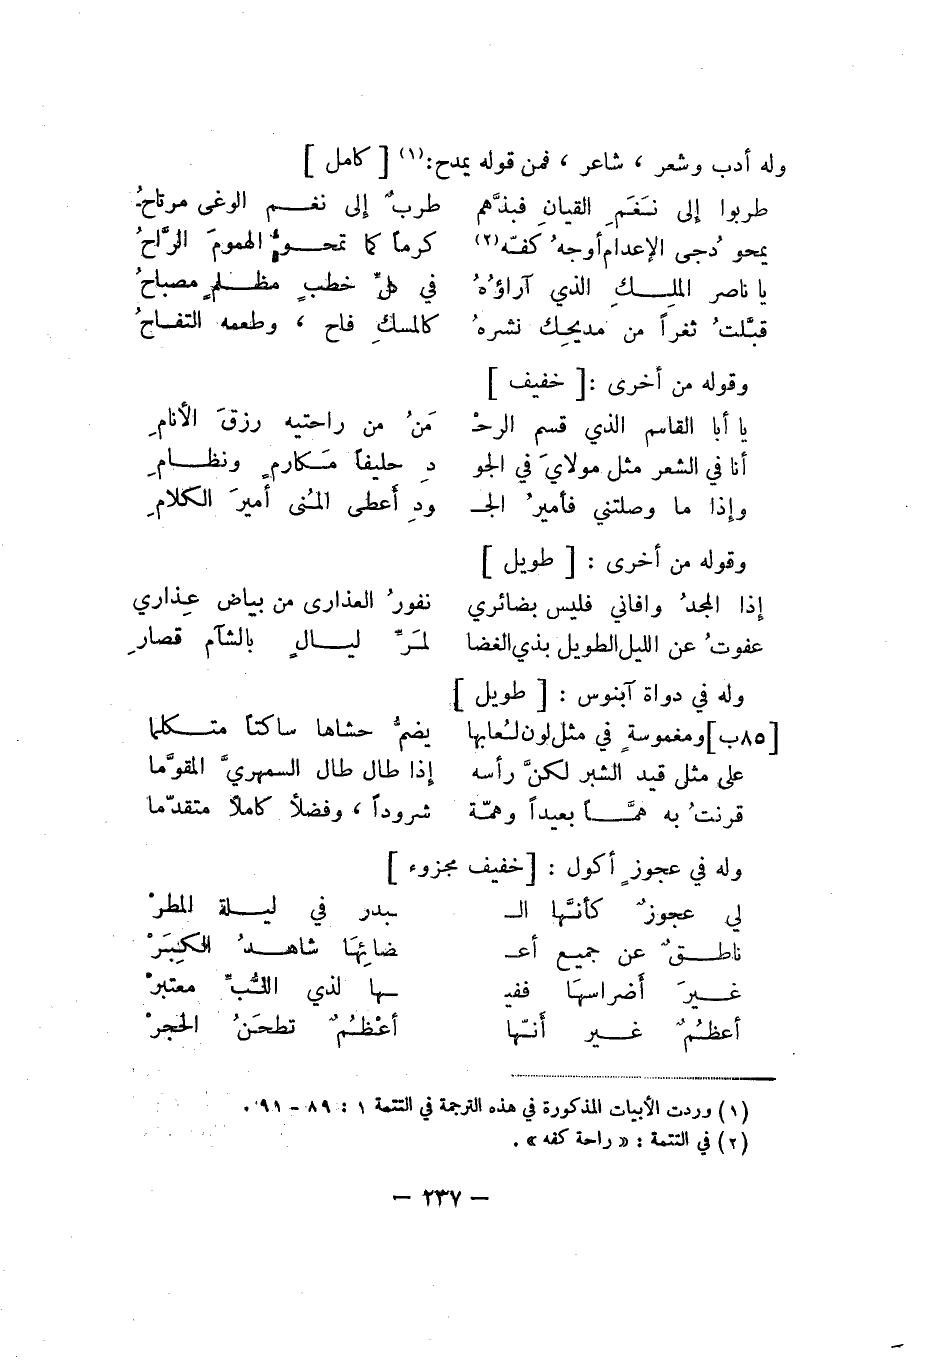 وله أدب وشعر ، شاعر ، فمن قوله يمدح:(١) [ كامل ]
طربوا إلى نَغَمِ القيانِ فبذَّهم طربٌ إلى نغم الوغى مرتاحُ
يمحو دُجى الإعدام أوجهُ كفّه(٢) كرماً كما تمحو الهمومَ الرَّاحُ
يا ناصر الملكِ الذي آراؤُهُ في كلِّ خطبٍ مظلمٍ مصباحُ
قبَّلتُ ثغراً من مديحك نشرهُ كالمسكِ فاح ، وطعمه التفاحُ
وقوله من أخرى :[ خفيف ]
يا أبا القاسم الذي قسم الرحْ مَنُ من راحتيه رزقَ الأنامِ
أنا في الشعر مثل مولايَ في الجو دِ حليفاً مَكارمٍ ونظامِ
وإذا ما وصلتني فأميرُ الجـ ودِ أعطى المُنى أميرَ الكلامِ
وقوله من أخرى : [ طويل ]
إذا المجدُ وافاني فليس بضائري نفورُ العذارى من بياض عِذاري
عفوتُ عن الليل الطويل بذي الغضا لمَرِّ ليالٍ بالشآم قصارِ
وله في دواة آبنوس : [ طويل ]
[٨٥ب] ومغموسةٍ في مثل لون لُعابها يضمُّ حشاها ساكتاً متكلما
على مثل قيد الشبر لكنَّ رأسه إذا طال طال السمهريَّ المقوَّما
قرنتُ به همَّاً بعيداً وهمّة شروداً ، وفضلاً كاملاً متقدّما
وله في عجوزٍ أكول : [خفيف مجزوء ]
لي عجوزٌ كأنَّها الـ ـبدر في ليلة المطرْ
ناطقٌ عن جميع أعـ ضائِهَا شاهدُ الكِبَرْ
غيرَ أضراسهَا ففيـ ـها لذي اللُّبِّ معتبرْ
أعظُمٌ غير أنّها أعْظُمٌ تطحَنُ الحجرْ
(١) وردت الأبيات المذكورة في هذه الترجمة في التتمة ١ : ٨٩ – ٩١ .
(٢) في التتمة : « راحة كفه » .
– ٢٣٧ –